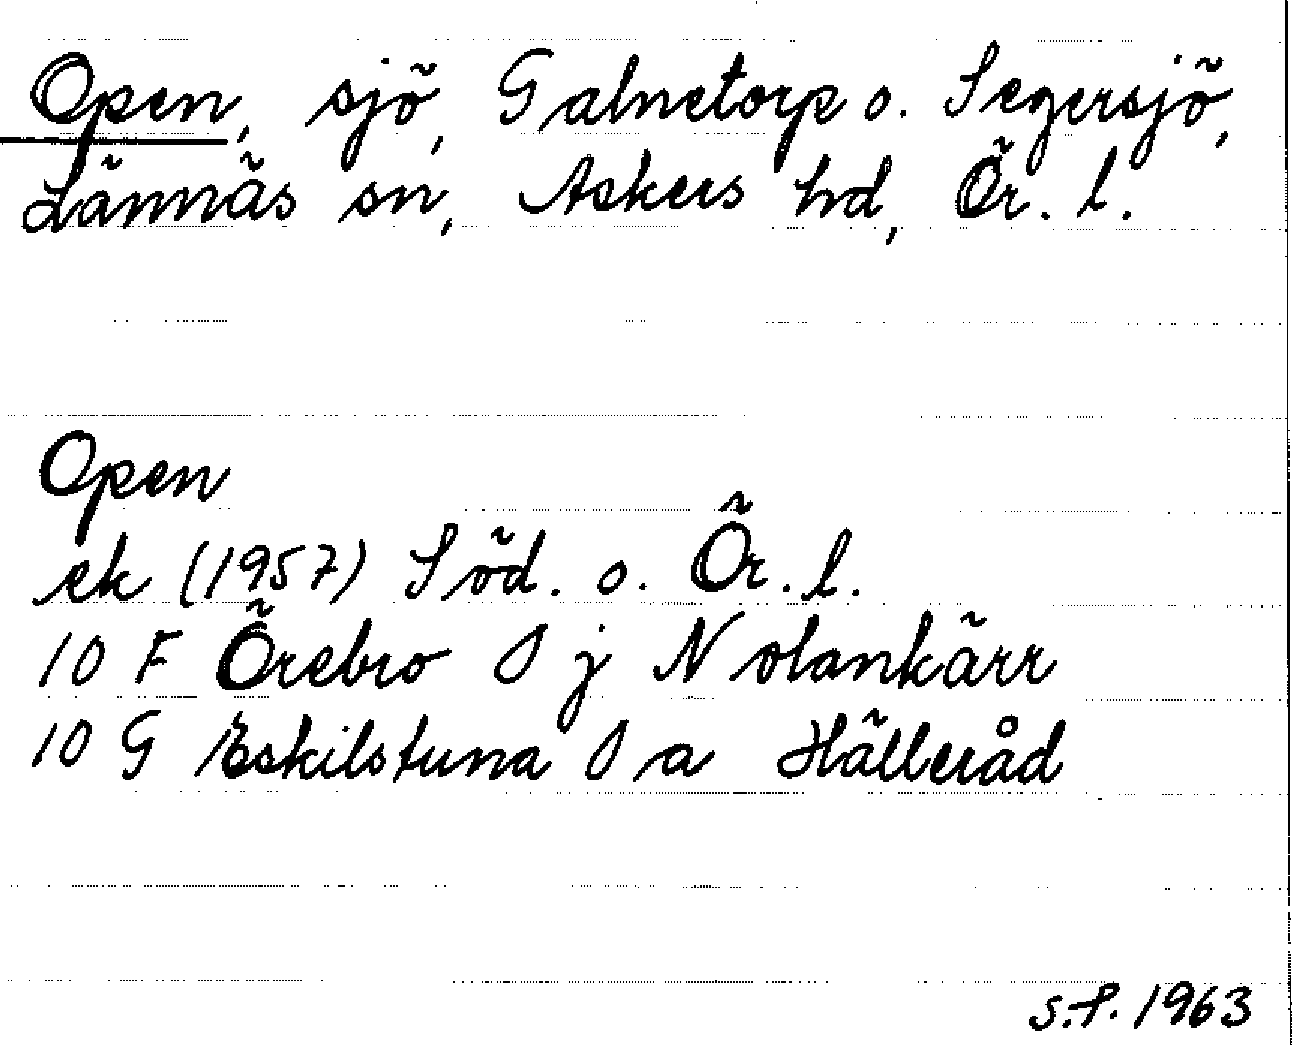 Open, sjö, Galnetorp o. Segersjö,
Lännäs sn, Askers hd, Ör. l.
Open
ek (1957) Söd. o. Ör. l.
10 F Örebro O j N olankärr
10 G Eskilstuna O a Hälleråd
S.F. 1963